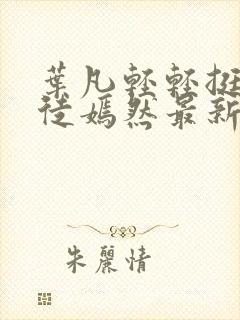 葉凡輕輕挺
徒嫣然最新
朱麗情